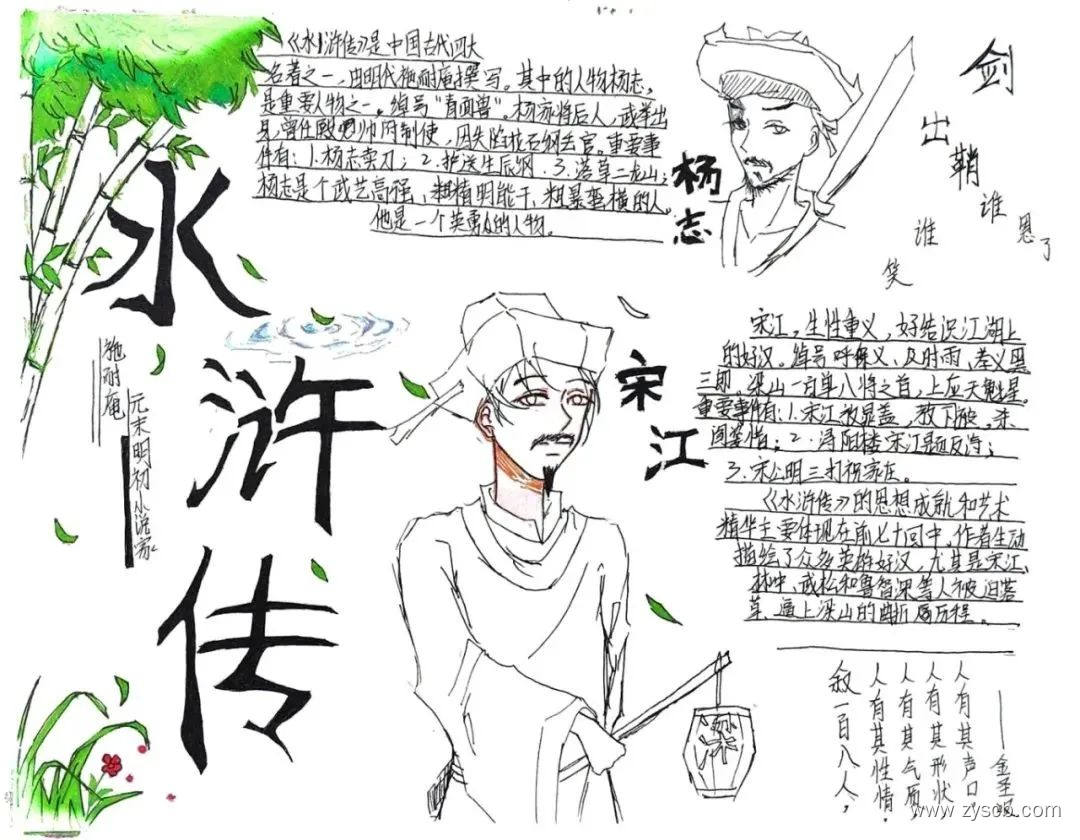 《水浒传》是中国古代四大
名著之一,由明代施耐庵撰写。其中的人物杨志,
是重要人物之一。绰号"青面兽"。杨家将后人,武举出
身,曾任殿司帅府制使,因失陷花石纲丢官。重要事
件有:1.杨志卖刀;2.护送生辰纲.3.落草二龙山;
杨志是个武艺高强、精明能干、粗暴蛮横的人。
他是一个英勇的人物。
杨志
剑出鞘谁
恩了
谁
笑
水浒传
施耐庵
元末明初小说家
宋江
宋江,生性重义,好结识江湖上
的好汉。绰号呼保义、及时雨、孝义黑
三郎,梁山一百单八将之首,上应天魁星。
重要事件有:1.宋江被晁盖,救下晁
2.浔阳楼宋江题反诗;
3.宋公明三打祝家庄。
《水浒传》的思想成就和艺术
精华主要体现在前七十回中。作者生动
描绘了众多英雄好汉,尤其是宋江、
林冲、武松和鲁智深等人被迫落
草、逼上梁山的曲折历程。
叙一百八人,
人有其性情,
人有其气质,
人有其形状,
人有其声口。
——金圣叹
www.zysob.com